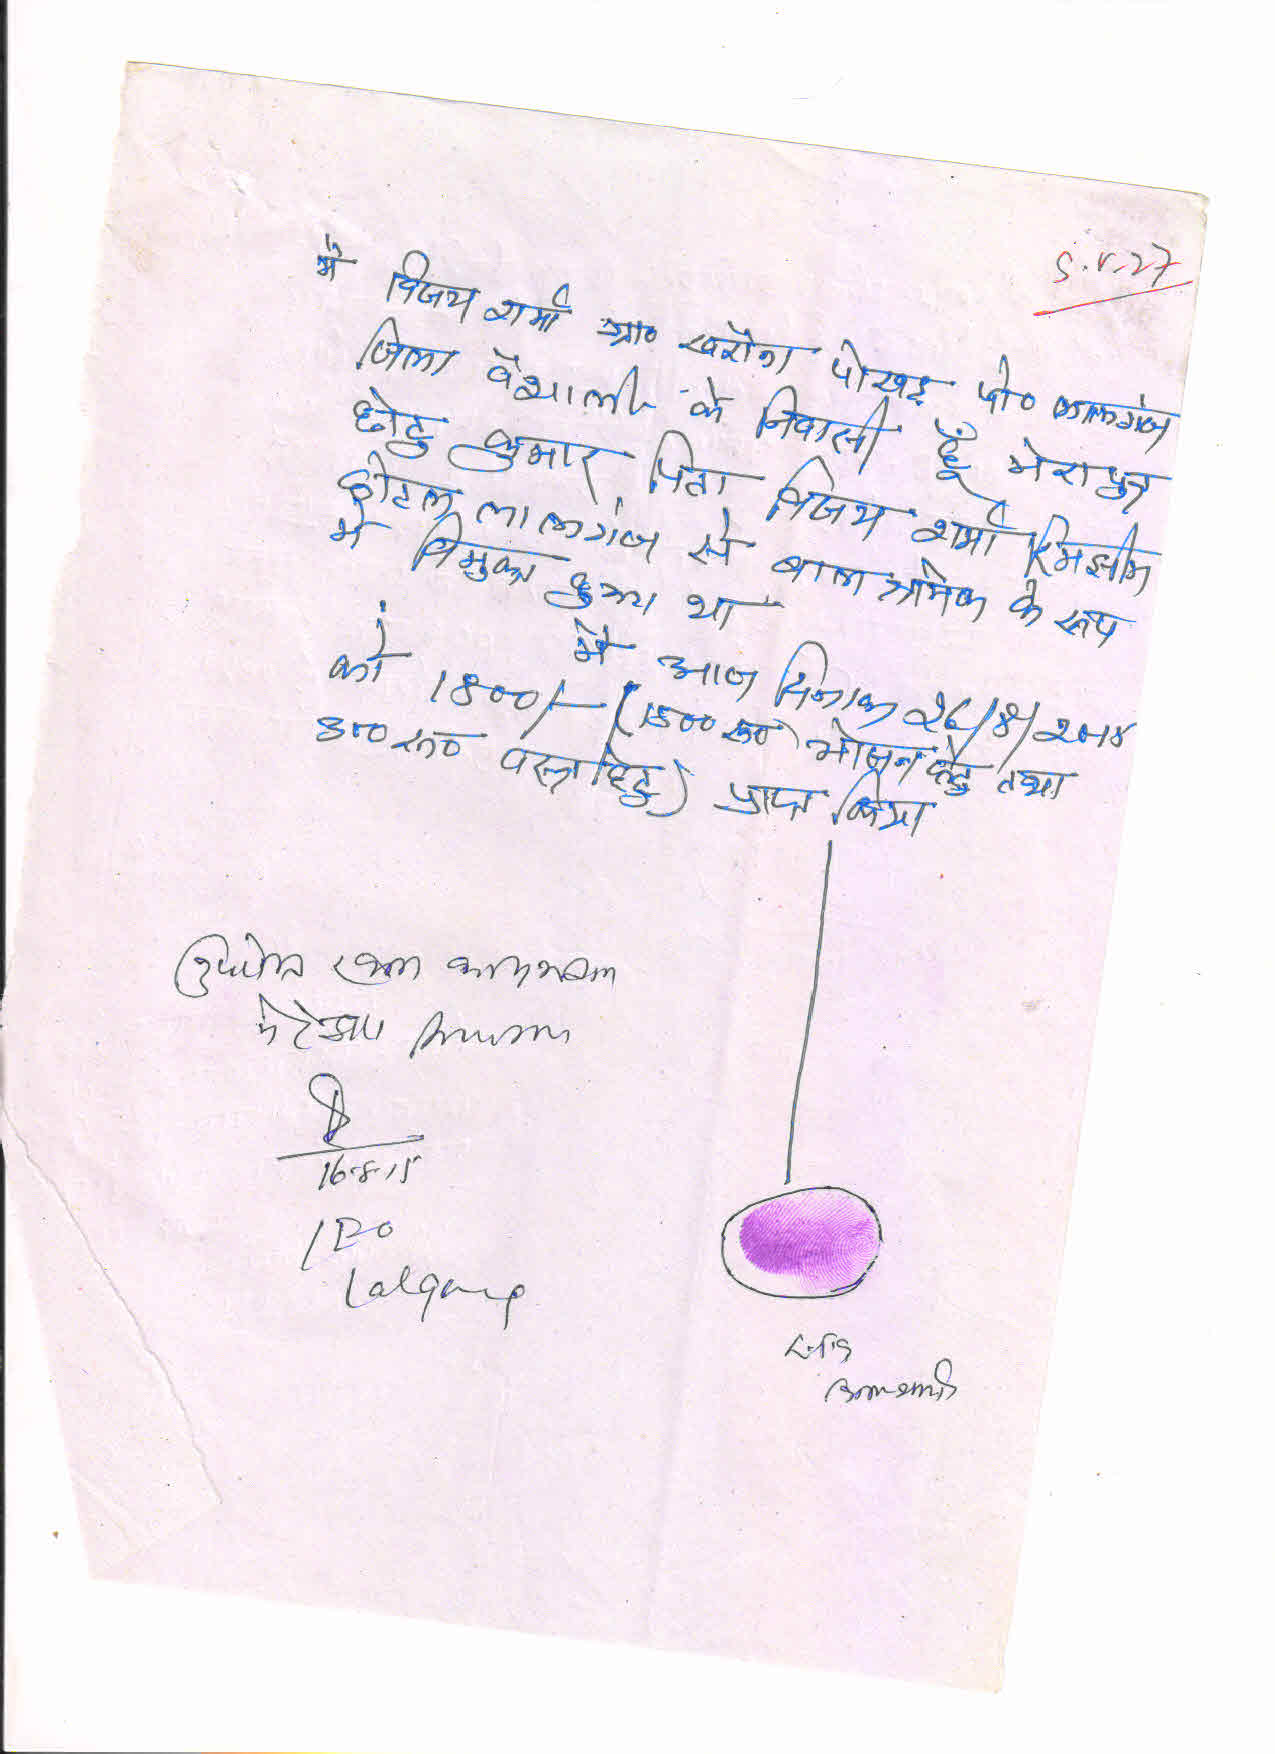 S.V.27
मै विजय शर्मा ग्रा० खरौना पोखइ पो० लालगंज
जिला वैशाली के निवासी हूँ मेरा पुत्र
छोटु कुमार पिता विजय शर्मा रिमझीम
होटल लालगंज से बाल श्रमिक के रूप
में विमुक्त हुआ था
मै आज दिनांक 26/8/2014
को 1800/- (1500 रू० भोजन हेतु तथा
300 रू० वस्त्र हेतु) प्राप्त किया
16.8.15
Lalganj